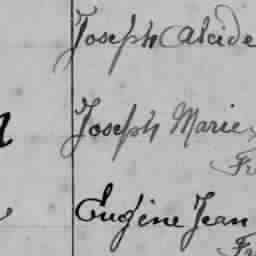 Joseph Alcide
Joseph Marie
Eugène Jean